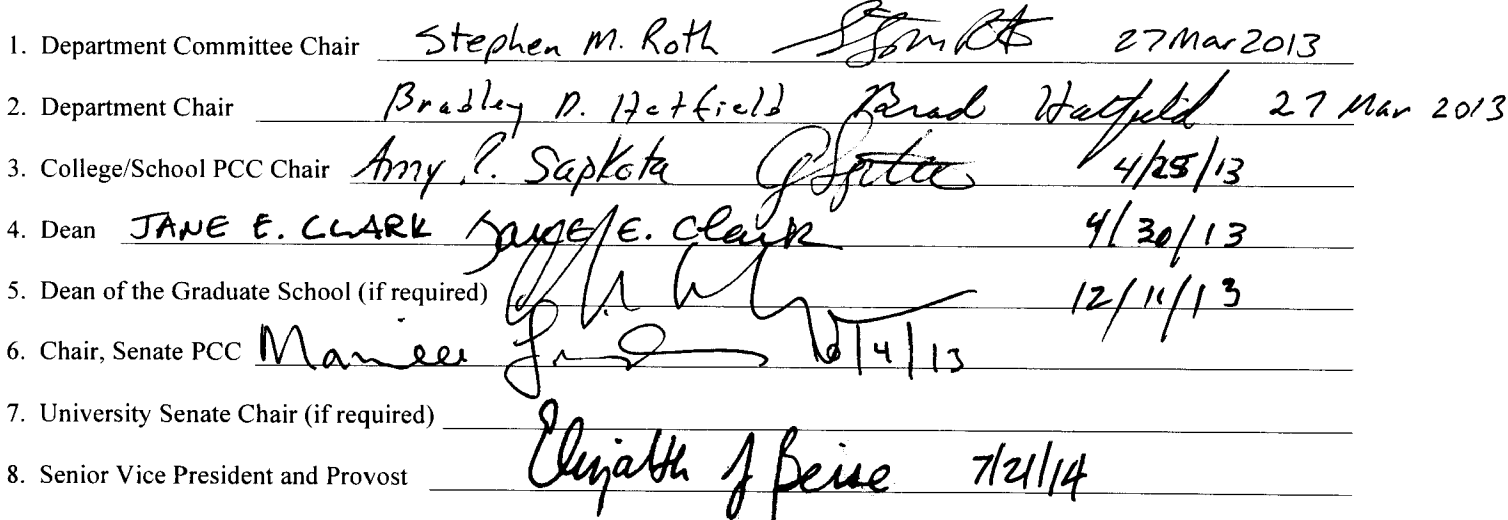 1. Department Committee Chair Stephen M. Roth 27 Mar 2013
2. Department Chair Bradley D. Hatfield Brad Hatfield 27 Mar 2013
3. College/School PCC Chair Amy R. Sapkota 4/25/13
4. Dean JANE E. CLARK Jane E. Clark 4/30/13
5. Dean of the Graduate School (if required) 12/11/13
6. Chair, Senate PCC /4/13
7. University Senate Chair (if required)
8. Senior Vice President and Provost Elizabeth J Beise 7/21/14